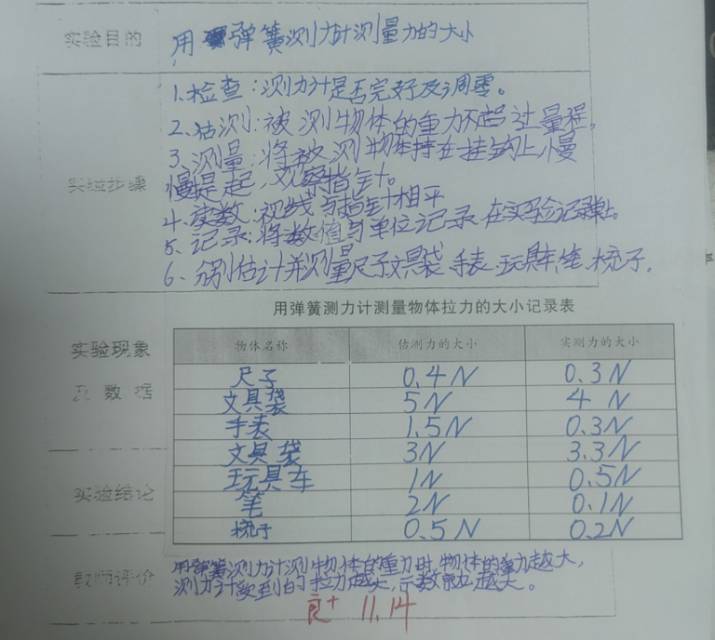 实验目的
用弹簧测力计测量力的大小
实验步骤
1.检查:测力计是否完好及调零。
2.估测:被测物体的重力不超过量程。
3、测量:将被测物体挂在挂钩上,慢
慢提起,观察指针。
4.读数:视线与指针相平
5、记录:将数值与单位记录在实验记录表上。
6、分别估计并测量尺子文具袋、手表、玩具车、笔、梳子.
用弹簧测力计测量物体拉力的大小记录表
实验现象
及数据
物体名称 估测力的大小 实测力的大小
尺子 0.4N 0.3N
文具袋 5N 4N
手表 1.5N 0.3N
文具袋 3N 3.3N
玩具车 1N 0.5N
笔 2N 0.1N
梳子 0.5N 0.2N
实验结论
教师评价
用弹簧测力计测物体的重力时,物体的重力越大,
测力计受到的拉力越大,示数就越大。
良+ 11.14